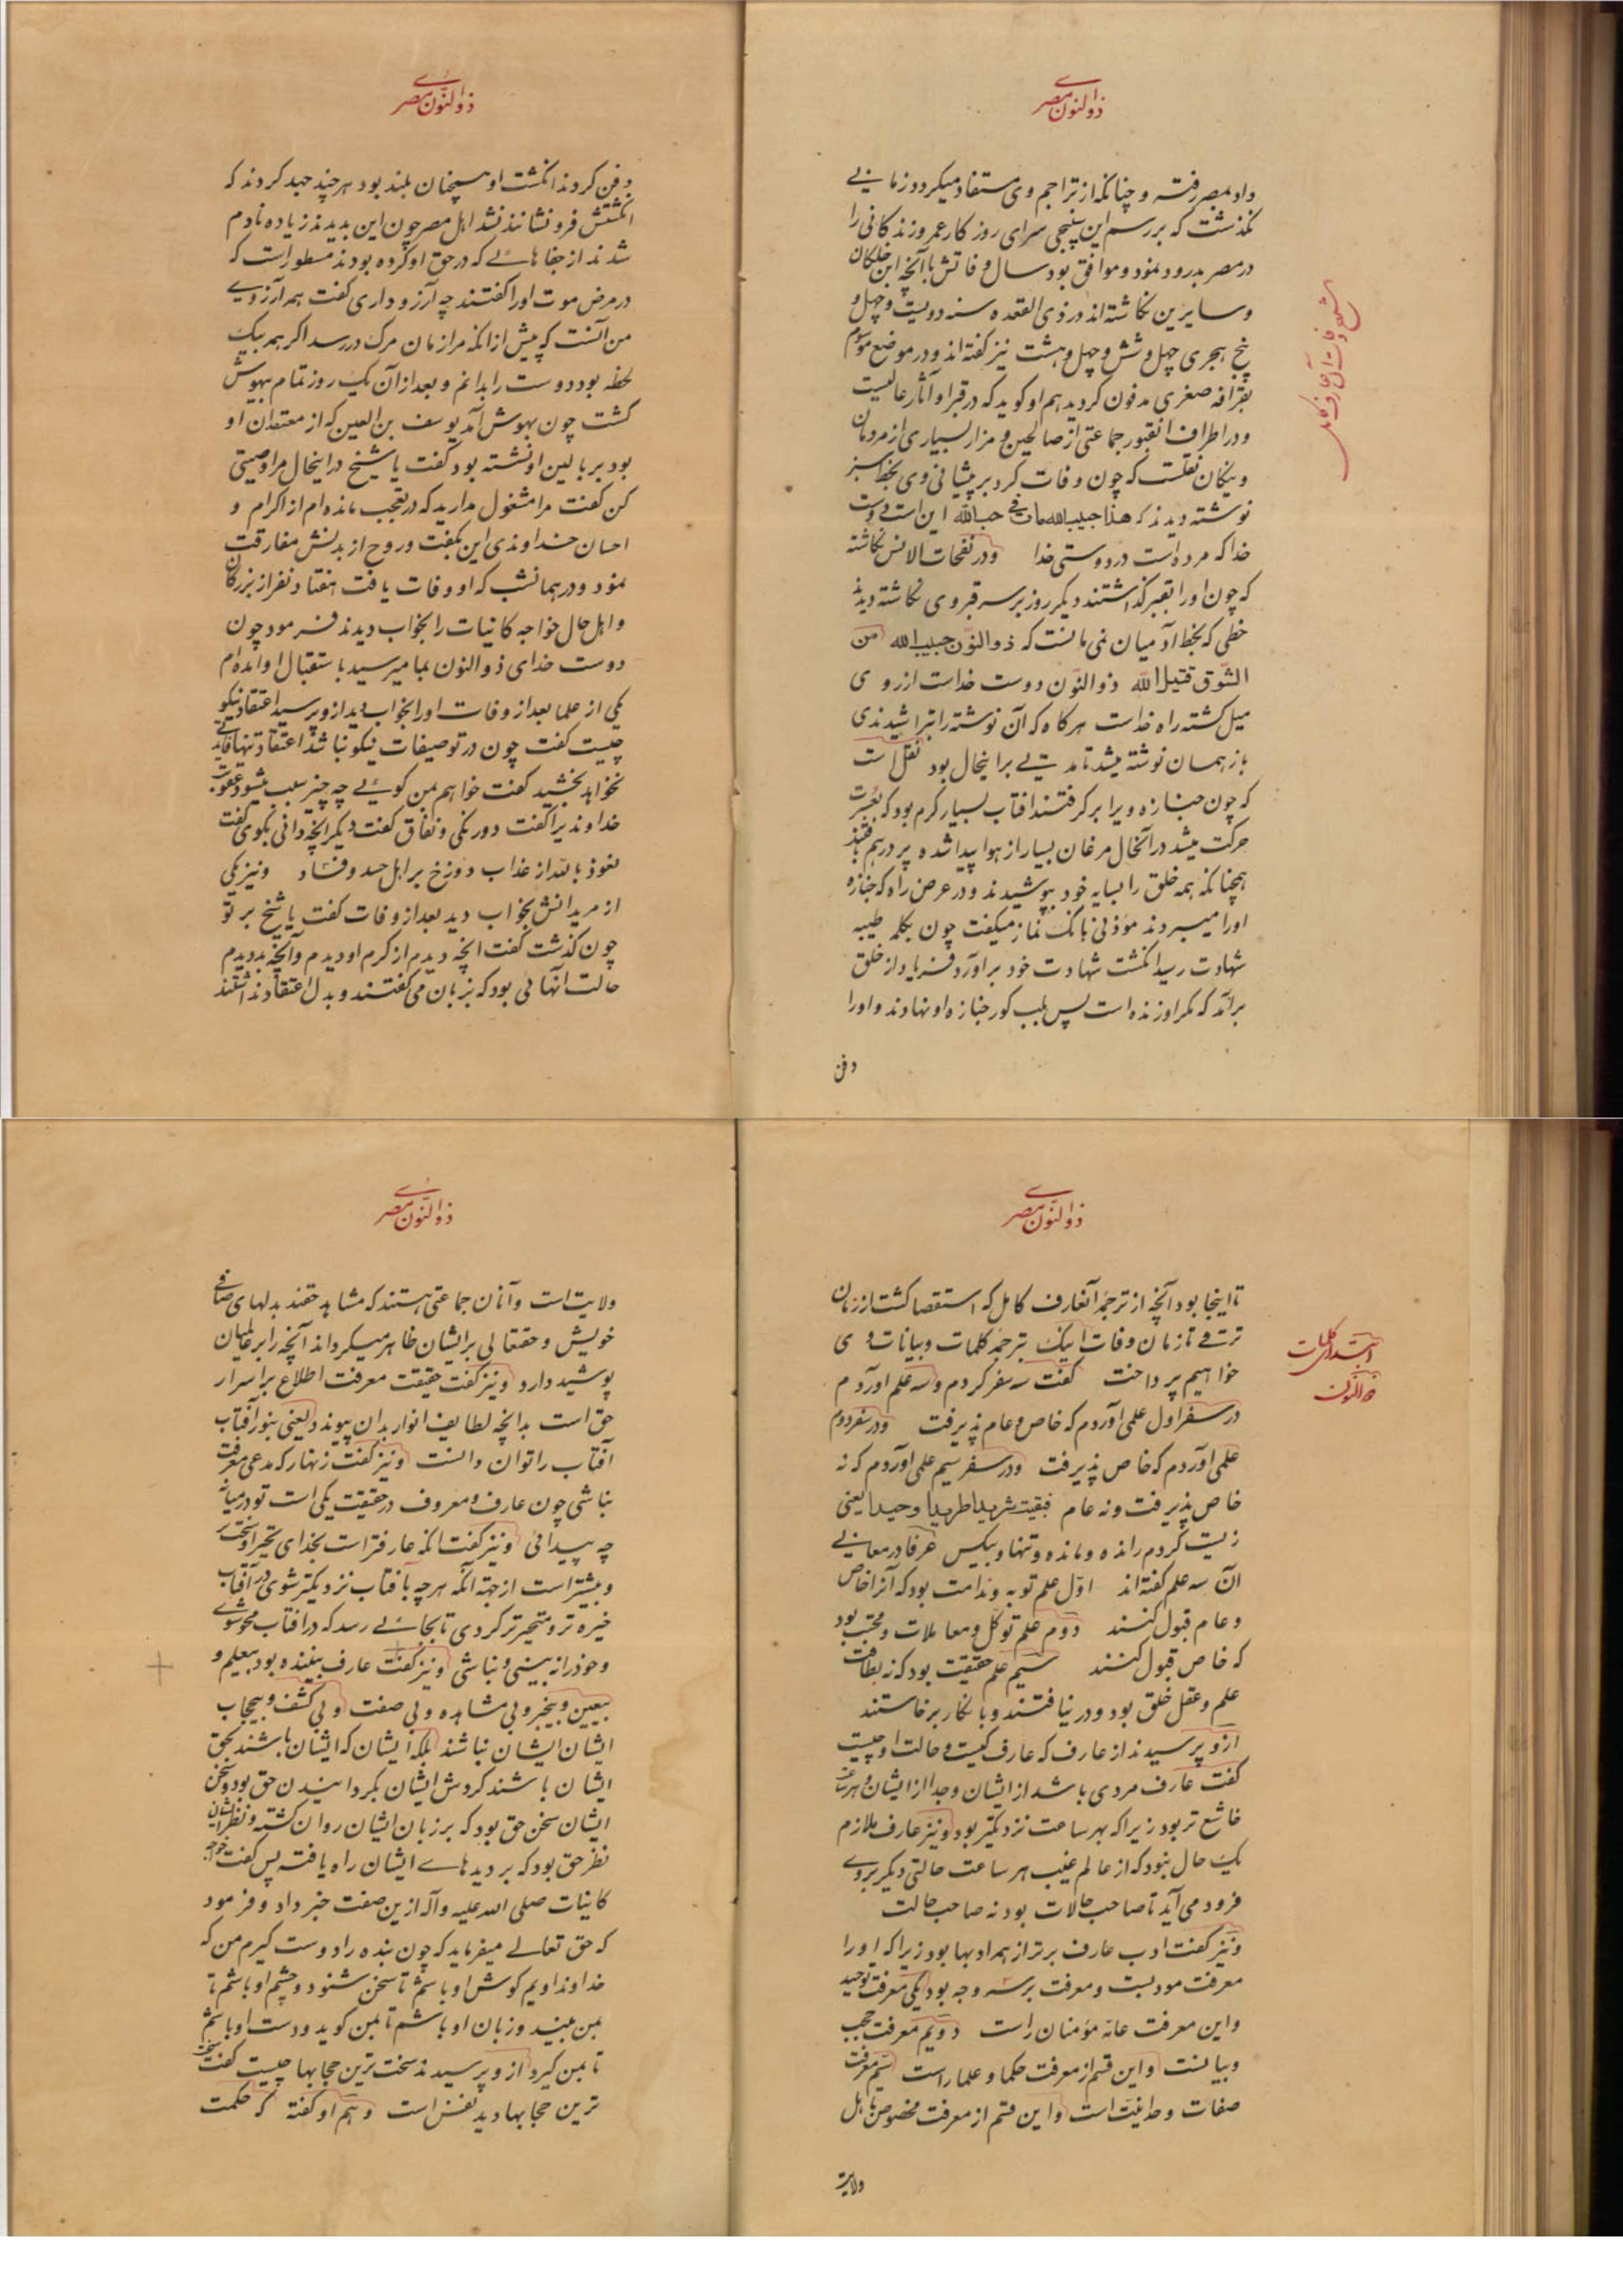 ذوالنون مصری
داد بمصر رفته و چنانکه از تراجم وی مستفاد میگردد زمانی
نگذشت که بر رسم این پنجی سرای روزکار عمر و زندکانی را
در مصر بدرود نمود و موافق بود سال وفاتش با آنچه ابن خلکان
و سایرین نکاشته‌اند در ذی القعده سنه دویست و چهل و
پنج هجری چهل و شش و چهل و هشت نیز کفته‌اند و در موضع موسوم
بقرافه صغری مدفون کردید هم او کوید که در قبر او آثار عالیست
و در اطراف آنقبور جماعتی از صالحین و مزار بسیاری از مردمان
و نیکان نقلست که چون وفات کرد بر پیشانی وی بخط سبز
نوشته دیدند که هذا حبیب الله مات فی حب الله این است دوست
خدا که مرده است در دوستی خدا ودر نفحات الانس نکاشته
که چون اورا بقبر کذاشتند دیکر روز بر سر قبر وی نکاشته دیدند
خطی که بخط آدمیان نمی‌مانست که ذوالنون حبیب الله من
الشوق قتیل الله ذوالنون دوست خداست از روی
میل کشته راه خداست هر کاه که آن نوشته را بتراشیدندی
باز همسان نوشته میشد تا مدتی بر اینحال بود نقل است
که چون جنازه ویرا بر کرفتند افتاب بسیار کرم بود که بعسرت
حرکت میشد در آنحال مرغان بسیار از هوا پیدا شده پر در هم بافتند
همچنانکه همه خلق را بسایه خود بپوشیدند و در عرض راه که جنازه
اورا میبردند مؤذنی بانک نماز میکفت چون بکلمه طیبه
شهادت رسید انکشت شهادت خود بر آورد فریاد از خلق
بر آمد که مکر او زنده است پس بلب کور جنازه او نهادند و اورا
دفن
شرح وفات آن عارف کامل
ذوالنون مصری
دفن کردند انکشت او همچنان بلند بود هر چند جهد کردند که
انکشتش فرو نشانند نشد اهل مصر چون این بدیدند زیاده نادم
شدند از جفاهائی که در حق او کرده بودند مسطور است که
در مرض موت اورا کفتند چه آرزو داری کفت همه آرزوی
من آنست که پیش از آنکه مرا زمان مرک در رسد اکر همه بیک
لحظه بود دوست را بدانم و بعد از آن یک روز تمام بیهوش
کشت چون بهوش آمد یوسف بن العین که از معتقدان او
بود بر بالین او نشسته بود کفت یا شیخ در اینحال مرا وصیتی
کن کفت مرا مشغول مدارید که در تعجب مانده‌ام از اکرام و
احسان خداوندی این بکفت و روح از بدنش مفارقت
نمود و در همانشب که او وفات یافت هفتاد نفر از بزرکان
و اهل حال خواجه کاینات را بخواب دیدند فرمود چون
دوست خدای ذوالنون بما میرسید باستقبال او آمده‌ام
یکی از علما بعد از وفات اورا بخواب دید از و پرسید اعتقاد نیکو
چیست کفت چون در تو صفات نیکو نباشد اعتقاد تنها فایده
نخواهد بخشید کفت خواهم بمن کوئی چه چیز سبب میشود عقوبت
خداوندیرا کفت دورنکی و نفاق کفت دیکر آنچه دانی بکوی کفت
نعوذ بالله از عذاب دوزخ بر اهل حسد و فساد و نیز یکی
از مریدانش بخواب دید بعد از وفات کفت یا شیخ بر تو
چون کذشت کفت آنچه دیدم از کرم او دیدم و آنچه بد دیدم
حالت آنهائی بود که بزبان می‌کفتند و بدل اعتقاد نداشتند
ذوالنون مصری
تا اینجا بود آنچه از ترجمه آنعارف کامل که استقصا کشت از زمان
ترقی تا زمان وفات اینک بترجمه کلمات و بیانات وی
خواهیم پرداخت کفت سه سفر کردم و سه علم آوردم
در سفر اول علمی آوردم که خاص و عام پذیرفت و در سفر دوم
علمی آوردم که خاص پذیرفت و در سفر سیم علمی آوردم که نه
خاص پذیرفت و نه عام فبقیت شریدا طریدا وحیدا یعنی
زیست کردم رانده و مانده و تنها و بیکس عرفا در معانی
آن سه علم کفته‌اند اول علم توبه و ندامت بود که آنرا خاص
و عام قبول کنند دوم علم توکل و معاملات و محبت بود
که خاص قبول کنند سیم علم حقیقت بود که نه بطاقت
علم و عقل خلق بود و در نیافتند و بانکار برخاستند
از و پرسیدند از عارف که عارف کیست و حالت او چیست
کفت عارف مردی باشد از ایشان و جدا از ایشان و هر ساعت
خاشع تر بود زیرا که بهر ساعت نزدیکتر بود و نیز عارف ملازم
یک حال نبود که از عالم غیب هر ساعت حالتی دیکر بروی
فرود می‌آید تا صاحب حالات بود نه صاحب حالت
و نیز کفت ادب عارف برتر از همه ادبها بود زیرا که اورا
معرفت مودبست و معرفت بر سه وجه بود یکی معرفت توحید
و این معرفت عامه مؤمنان راست دویم معرفت حجب
و بیانست و این قسم از معرفت حکما و علما راست سیم معرفت
صفات وحدانیت است و این قسم از معرفت مخصوص باهل
ولایت
ابتدای کلمات
ذوالنون
ذوالنون مصری
ولایت است و آنان جماعتی هستند که مشاهد حقند بدلهای صافی
خویش و حقتعالی بر ایشان ظاهر میکرداند آنچه را بر عالمیان
پوشیده دارد و نیز کفت حقیقت معرفت اطلاع بر اسرار
حق است بدانچه لطایف انوار بدان پیوندد یعنی بنور آفتاب
آفتاب را توان دانست و نیز کفت زنهار که مدعی معرفت
نباشی چون عارف و معروف در حقیقت یکی است تو در میانه
چه پیدائی و نیز کفت آنکه عارفتر است بخدای تحیر او سخت‌تر
و بیشتر است از جهة آنکه هر چه بآفتاب نزدیکتر شوی در آفتاب
خیره تر و متحیرتر کردی تا بجائی رسد که در افتاب محو شوی
و خود را نه بینی و نباشی و نیز کفت عارف بیننده بود بیعلم و
بیعین و بیخبر و بی مشاهده و بی صفت و بی کشف و بیحجاب
ایشان ایشان نباشند بلکه ایشان که ایشان باشند بحق
ایشان باشند کردش ایشان بکردانیدن حق بود و سخن
ایشان سخن حق بود که بر زبان ایشان روان کشته و نظر ایشان
نظر حق بود که بر دیدهای ایشان راه یافته پس کفت خواجه
کاینات صلی الله علیه و آله ازین صفت خبر داد و فرمود
که حق تعالی میفرماید که چون بنده را دوست کیرم من که
خداوندا ویم کوش او باشم تا سخن شنود و چشم او باشم تا
بمن بیند و زبان او باشم تا بمن کوید و دست او باشم
تا بمن کیرد از و پرسیدند سخت ترین حجابها چیست کفت سخت
ترین حجابها دید نفس است و هم او کفته که حکمت